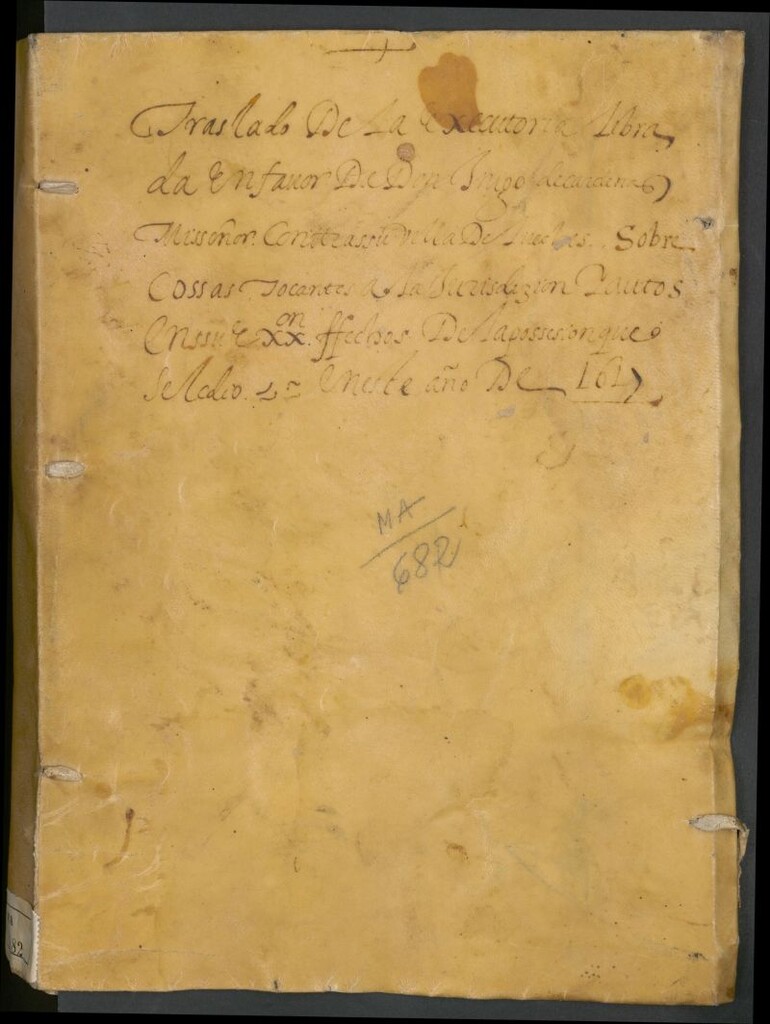 Traslado De La Executoria Libra
da En fauor De Don Inigo decardenas
Mi señor. Contra ssu villa De . Sobre
Cossas Tocantes a La Jurisdizion Y autos
En ssu Exxon. ffechos. De la possesion que
Se le dio. En este año De 1617
MA
682
82